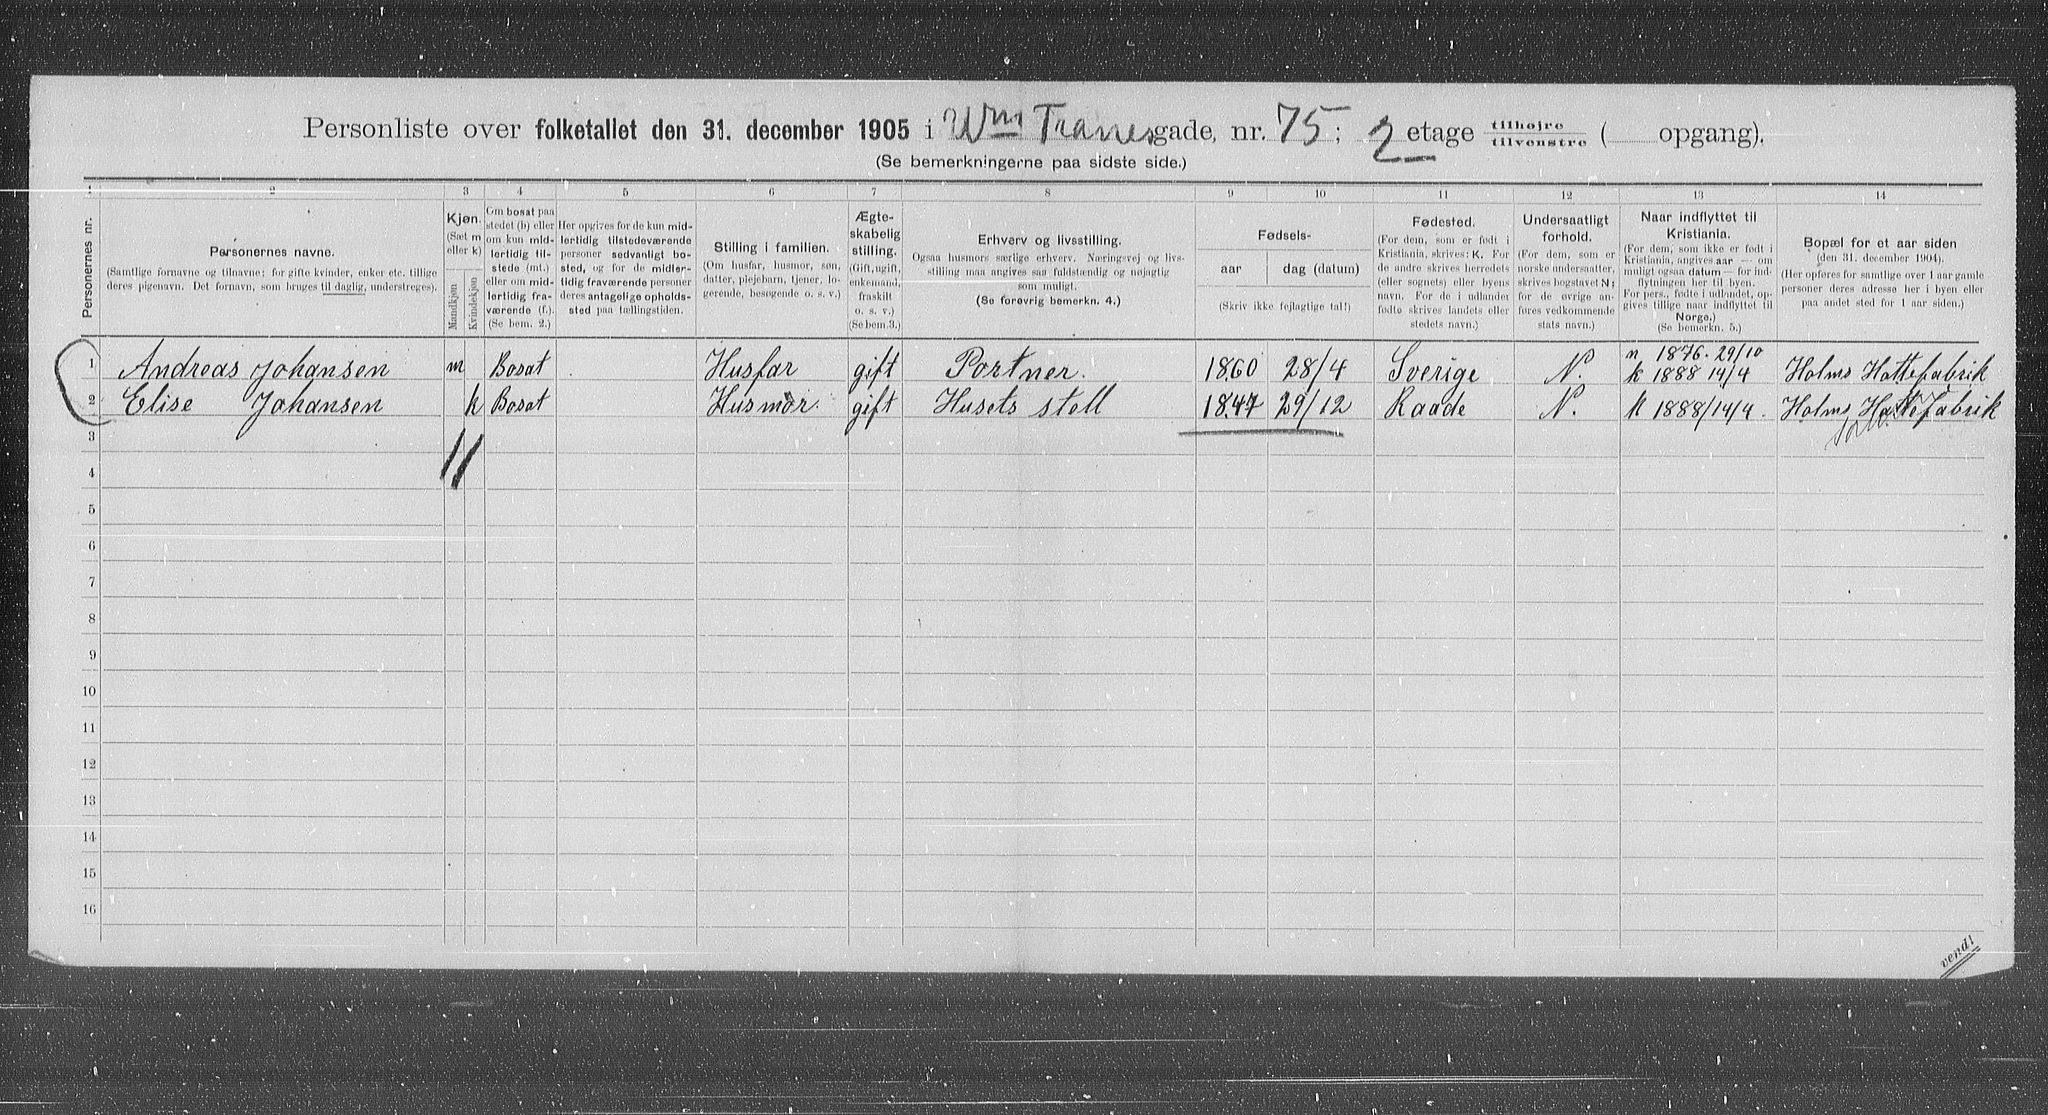 Personliste over folketallet den 31. december 1905 i Wm Tranes gade, nr. 75; 2 etage tilhøjre tilvenstre ( opgang).
(Se bemerkningerne paa sidste side.)
1 2 3 4 5 6 7 8 9 10 11 12 13 14
Personernes nr.
Personernes navne.
(Samtlige fornavne og tilnavne; for gifte kvinder, enker etc. tillige
deres pigenavn. Det fornavn, som bruges til daglig, understreges).
Kjøn.
(Sæt m
eller k)
Mandkjøn
Kvindekjøn
Om bosat paa
stedet (b) eller
om kun mid-
lertidig til-
stede (mt.)
eller om mid-
lertidig fra-
værende (f.).
(Se bem. 2.)
Her opgives for de kun mid-
lertidig tilstedeværende
personer sedvanligt bo-
sted, og for de midler-
tidig fraværende personer
deres antagelige opholds-
sted paa tællingstiden.
Stilling i familien.
(Om husfar, husmor, søn,
datter, plejebarn, tjener, lo-
gerende, besøgende o. s. v.)
Ægte-
skabelig
stilling.
(Gift, ugift,
enkemand,
fraskilt
o. s. v.)
(Se bem. 3.)
Erhverv og livsstilling.
Ogsaa husmors særlige erhverv. Næringsvej og livs-
stilling maa angives saa fuldstændig og nøjagtig
som muligt.
(Se forøvrig bemerkn. 4.)
Fødsels-
aar dag (datum)
(Skriv ikke fejlagtige tal!)
Fødested.
(For dem, som er født i
Kristiania, skrives: K. For
de andre skrives herredets
(eller sognets) eller byens
navn. For de i udlandet
fødte skrives landets eller
stedets navn.)
Undersaatligt
forhold.
(For dem, som er
norske undersaatter,
skrives bogstavet N;
for de øvrige an-
føres vedkommende
stats navn.)
Naar indflyttet til
Kristiania.
(For dem, som ikke er født i
Kristiania, angives aar — om
muligt ogsaa datum — for ind-
flytningen her til byen.
For pers., fødte i udlandet, op-
gives tillige naar indflyttet til
Norge.)
(Se bemerkn. 5.)
Bopæl for et aar siden
(den 31. december 1904).
(Her opføres for samtlige over 1 aar gamle
personer deres adresse her i byen eller
paa andet sted for 1 aar siden.)
n 1876. 29/10
1 Andreas Johansen m Bosat Husfar gift Portner. 1860 28/4 Sverige N. k 1888 14/4 Holms Hattefabrik
2 Elise Johansen k Bosat Husmor. gift Husets stell 1847 29/12 Raade N. k 1888/14/4. Holms Hattefabrik
3
4
5
6
7
8
9
10
11
12
13
14
15
16
vend!